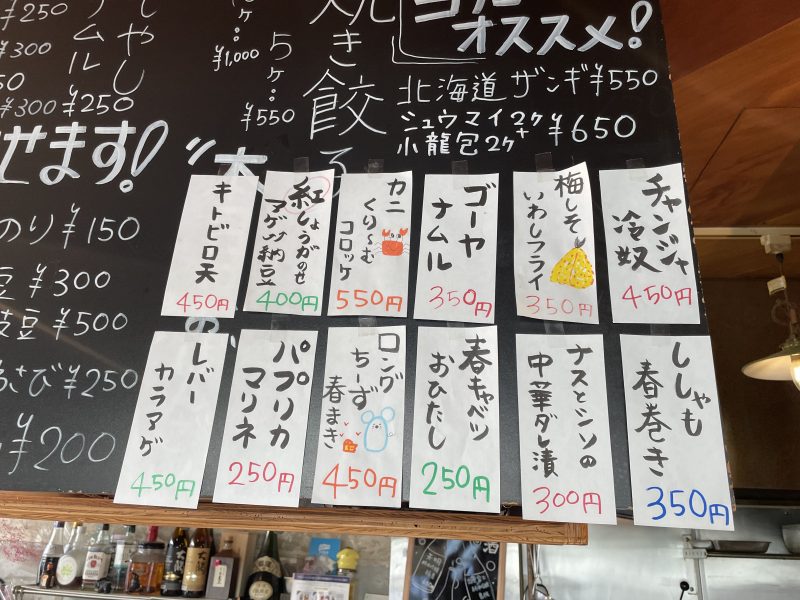 ¥250
¥300
¥300 ¥250
ナムル
もやし
¥1,000
5ヶ:
¥550
焼き餃子
オススメ!
北海道ザンギ¥550
シュウマイ2ヶ+
小龍包2ヶ
¥650
せます!
のり¥150
豆¥300
枝豆¥500
わさび¥250
¥200
チャンジャ
冷奴
450円
梅しそ
いわしフライ
350円
ゴーヤ
ナムル
350円
カニ
くり〜む
コロッケ
550円
紅しょうがのせ
マグロ納豆
400円
キトビロ天
450円
ししゃも
春巻き
350円
ナスとシソの
中華ダレ漬
300円
春キャベツ
おひたし
250円
ロング
ちーず
春まき
450円
パプリカ
マリネ
250円
レバー
カラアゲ
450円